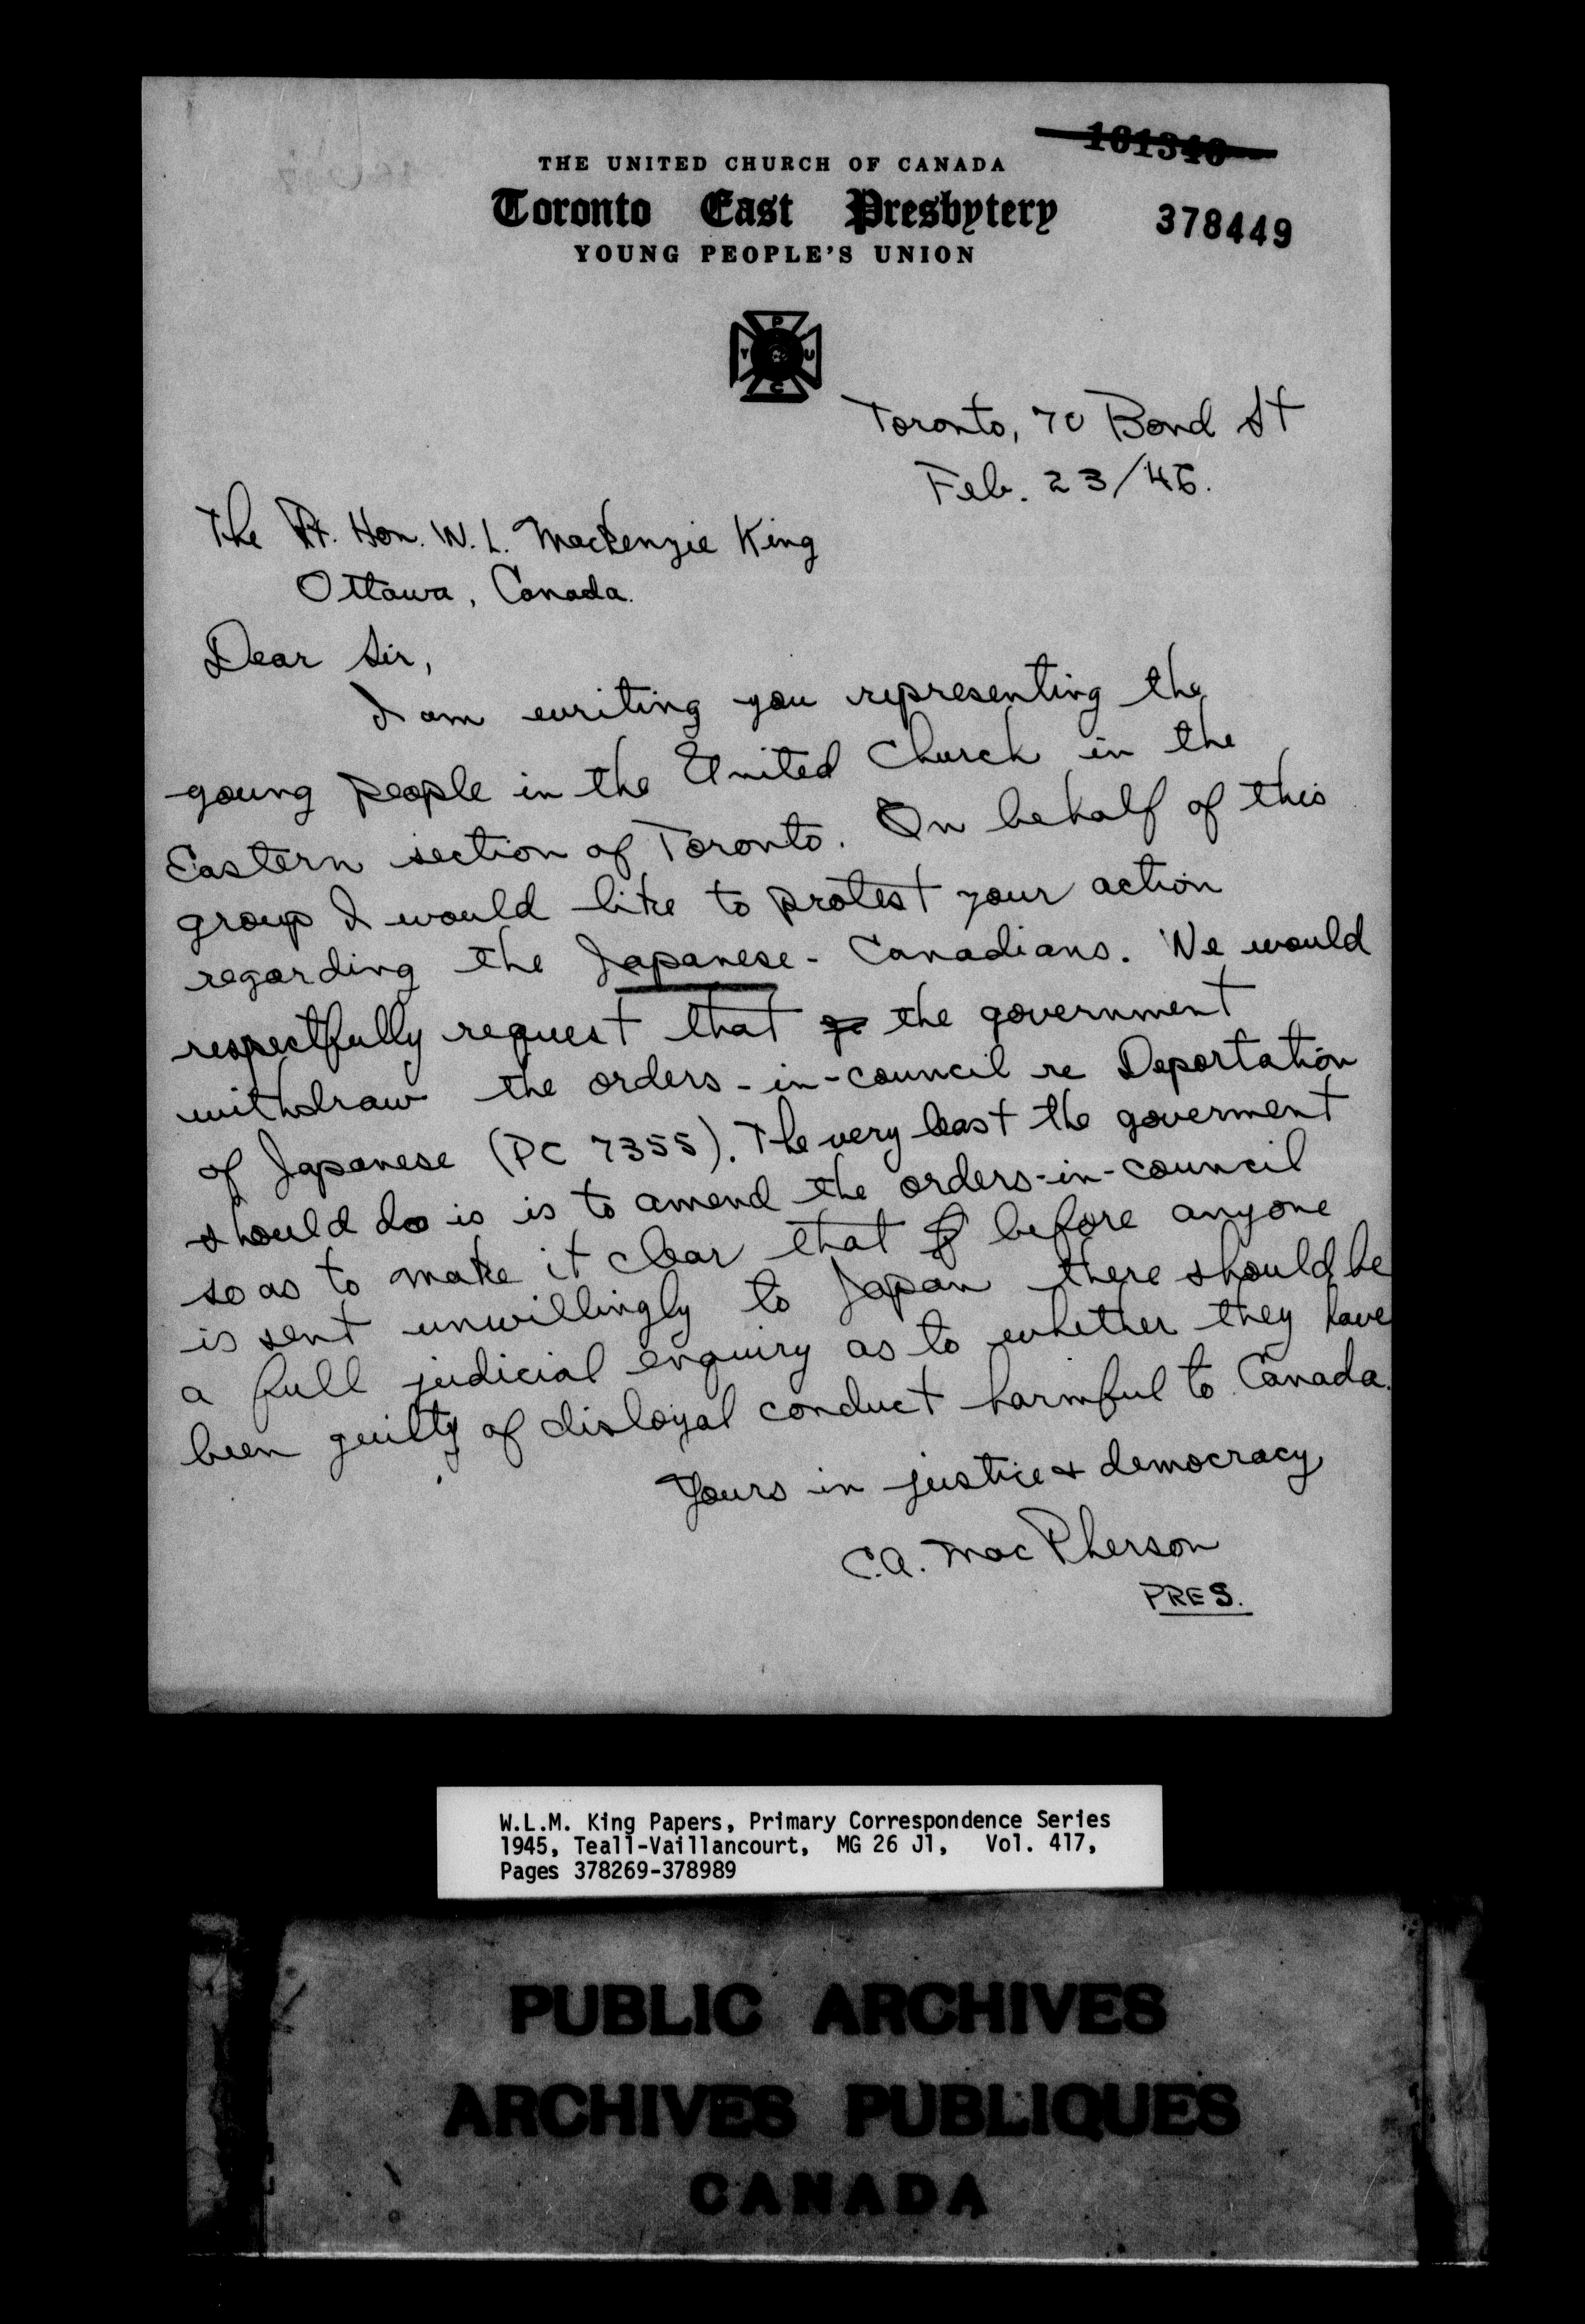 101340
THE UNITED CHURCH OF CANADA
Toronto East Presbytery
378449
YOUNG PEOPLE'S UNION
P
Y U
C
Toronto, 70 Bond St
Feb. 23/45.
The Rt. Hon. W. L. Mackenzie King
Ottawa, Canada.
Dear Sir,
I am writing you representing the
young people in the United Church in the
Eastern section of Toronto. On behalf of this
group I would like to protest your action
regarding the Japanese-Canadians. We would
respectfully request that the government
withdraw the orders-in-council re Deportation
of Japanese (PC 7355). The very least the goverment
should do is is to amend the orders-in-council
so as to make it clear that before anyone
is sent unwillingly to Japan there should be
a full judicial enquiry as to whether they have
been guilty of disloyal conduct harmful to Canada.
Yours in justice & democracy
C.A. MacPherson
PRES.
W.L.M. King Papers, Primary Correspondence Series
1945, Teall-Vaillancourt, MG 26 J1, Vol. 417,
Pages 378269-378989
PUBLIC ARCHIVES
ARCHIVES PUBLIQUES
CANADA